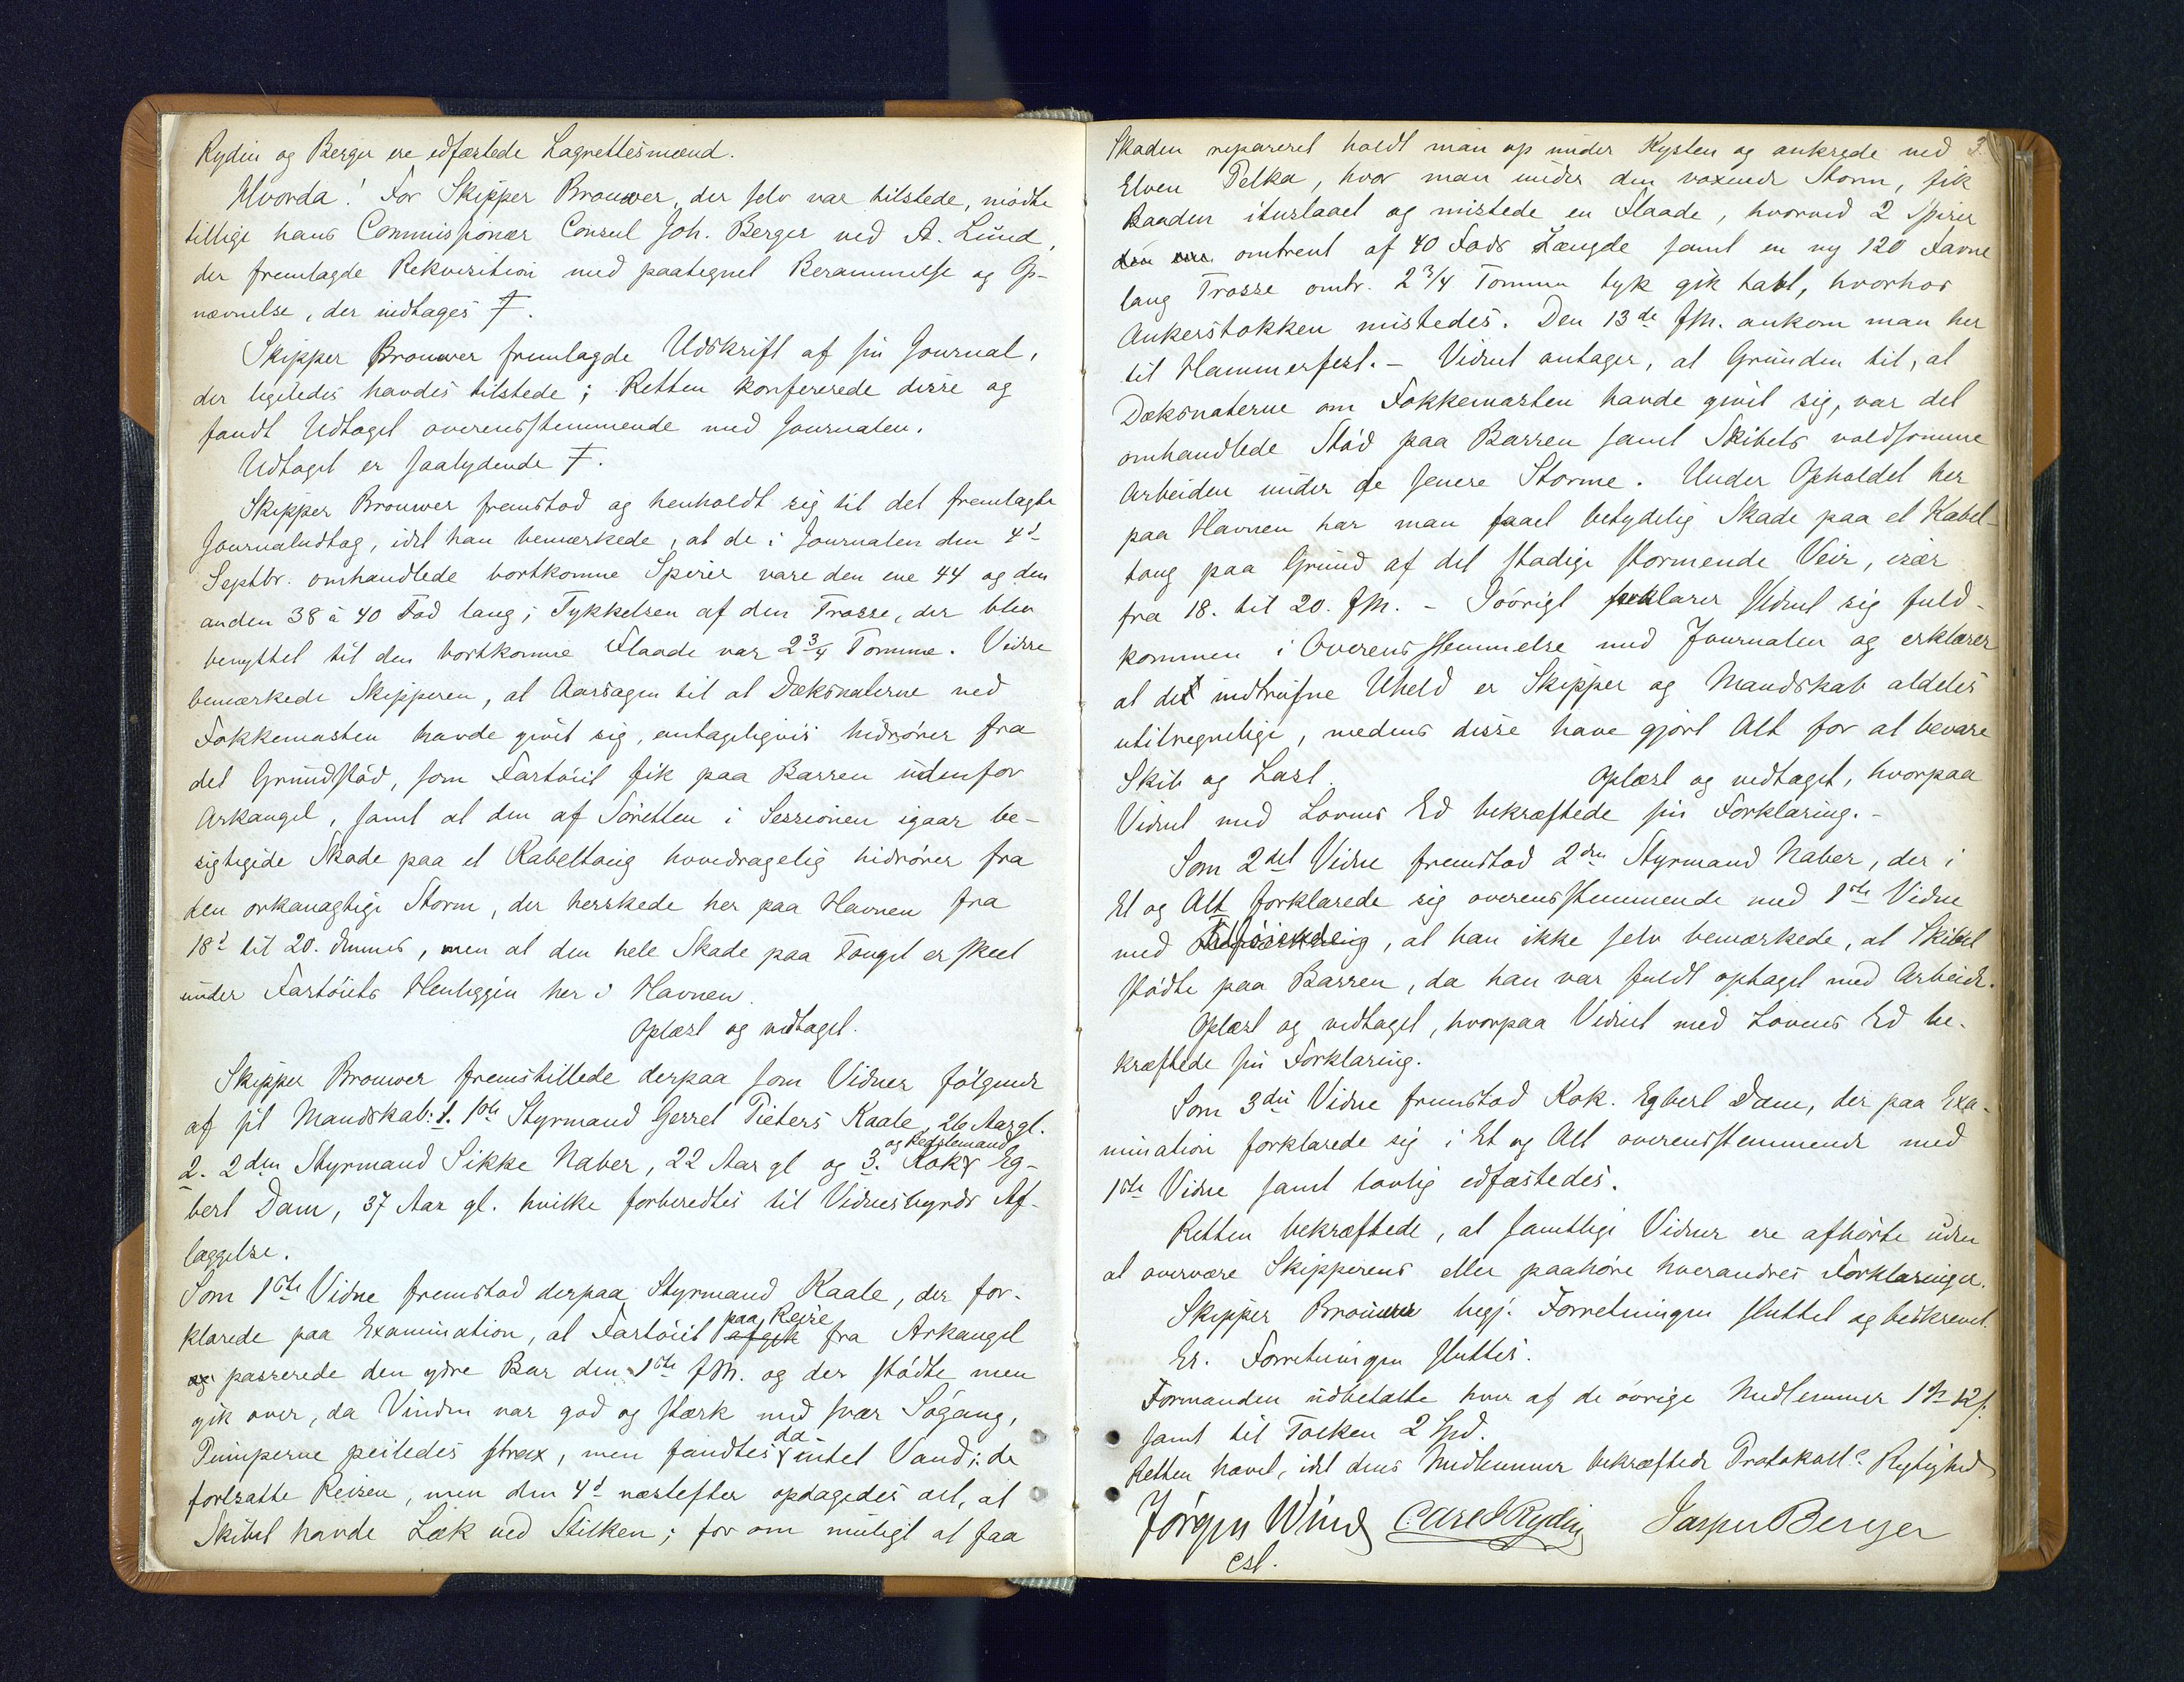 Rydin og Berger ere edfæstede Lagrettesmænd.
Hvorda! For Skipper Brouwer, der selv var tilstede, mødte
tillige hans Commissionær Consul Joh. Berger ved A. Lund,
der fremlagde Rekvisition med paategnet Berammelse og Op-
nævnelse, der indtages Ŧ.
Skipper Brouwer fremlagde Udskrift af sin Journal,
der ligeledes havdes tilstede; Retten konfererede disse og
fandt Udtoget overensstemmende med Journalen.
Udtoget er saalydende Ŧ.
Skipper Brouwer fremstod og henholdt sig til det fremlagte
Journaludtog, idet han bemærkede, at de i Journalen den 4de
Septbr. omhandlede bortkomne Spirer vare den ene 44 og den
anden 38 à 40 Fod lang; Tykkelsen af den Trosse, der blev
benyttet til den bortkomne Flaade var 2 3/4 Tomme. Vidre
bemærkede Skipperen, at Aarsagen til at Dæksnaterne ved
Fokkemasten havde givet sig, antageligvis hidrører fra
det Grundstød, som Fartøiet fik paa Barren udenfor
Arkangel, samt at den af Søretten i Sessionen igaar be-
sigtigede Skade paa et Kabeltoug hovedsagelig hidrører fra
den orkanagtige Storm, der herskede her paa Havnen fra
18de til 20. dennes, men at den hele Skade paa Touget er skeet
under Fartøiets Henliggen her i Havnen.
Oplæst og vedtaget.
Skipper Brouwer fremstillede derpaa som Vidner følgende
af sit Mandskab: 1. 1ste Styrmand Gerret Pieters Kaale, 26 Aar gl.
2. 2den Styrmand Sikke Naber, 22 Aar gl og 3. Kok og Bedstemand Eg-
bert Dam, 37 Aar gl. hvilke forberedtes til Vidnesbyrds Af-
læggelse.
Som 1ste Vidne fremstod derpaa Styrmand Kaale, der for-
klarede paa Examination, at Fartøiet afgik paa Reise fra Arkangel
og passerede den ydre Bar den 1ste f.M. og der stødte men
gik over, da Vinden var god og stærk med svær Søgang,
Pumperne peiledes strax, men fandtes da intet Vand; de
fortsatte Reisen, men den 4de næstefter opdagedes det, at
Skibet havde Læk ved Stilken; for om muligt at faa
3.
Skaden repareret holdt man op under Kysten og ankrede ved
Elven Pelka, hvor man under den voxende Storm, fik
Baaden ituslaaet og mistede en Flaade, hvorved 2 Spirer
den ene omtrent af 40 Fods Længde samt en ny 120 Favne
lang Trosse omtr. 2 3/4 Tomme tyk gik tabt, hvorhos
Ankerstokken mistedes. Den 13de f.M. ankom man her
til Hammerfest. – Vidnet antager, at Grunden til, at
Dæksnaterne om Fokkemasten havde givet sig, var det
omhandlede Stød paa Barren samt Skibets voldsomme
Arbeiden under de senere Storme. Under Opholdet her
paa Havnen har man faaet betydelig Skade paa et Kabel-
toug paa Grund af det stadige stormende Veir, især
fra 18. til 20. f.M. – Iøvrigt forklarer Vidnet sig fuld-
kommen i Overensstemmelse med Journalen og erklærer
at det indtrufne Uheld er Skipper og Mandskab aldeles
utilregnelige, medens disse have gjort Alt for at bevare
Skib og Last. Oplæst og vedtaget, hvorpaa
Vidnet med Lovens Ed bekræftede sin Forklaring. –
Som 2det Vidne fremstod 2den Styrmand Naber, der i
Et og Alt forklarede sig overensstemmende med 1ste Vidne
med , at han ikke selv bemærkede, at Skibet
stødte paa Barren, da han var fuldt optaget med Arbeide.
Oplæst og vedtaget, hvorpaa Vidnet med Lovens Ed be-
kræftede sin Forklaring.
Som 3die Vidne fremstod Kok. Egbert Dam, der paa Exa-
mination forklarede sig i Et og Alt overensstemmende med
1ste Vidne samt lovlig edfæstedes.
Retten bekræftede, at samtlige Vidner ere afhørte uden
at overvære Skipperens eller paahøre hverandres Forklaringer.
Skipper Brouwer begj. Forretningen sluttet og beskrevet.
Er. Forretningen sluttes.
Formanden udbetalte hver af de øvrige Medlemmer
samt til Tolken 2 Spd.
Retten hævet, idet dens Medlemmer bekræftede Protokoll's Rigtighed
Jørgen Wind Carl Rydin Jasper Berger
cst.